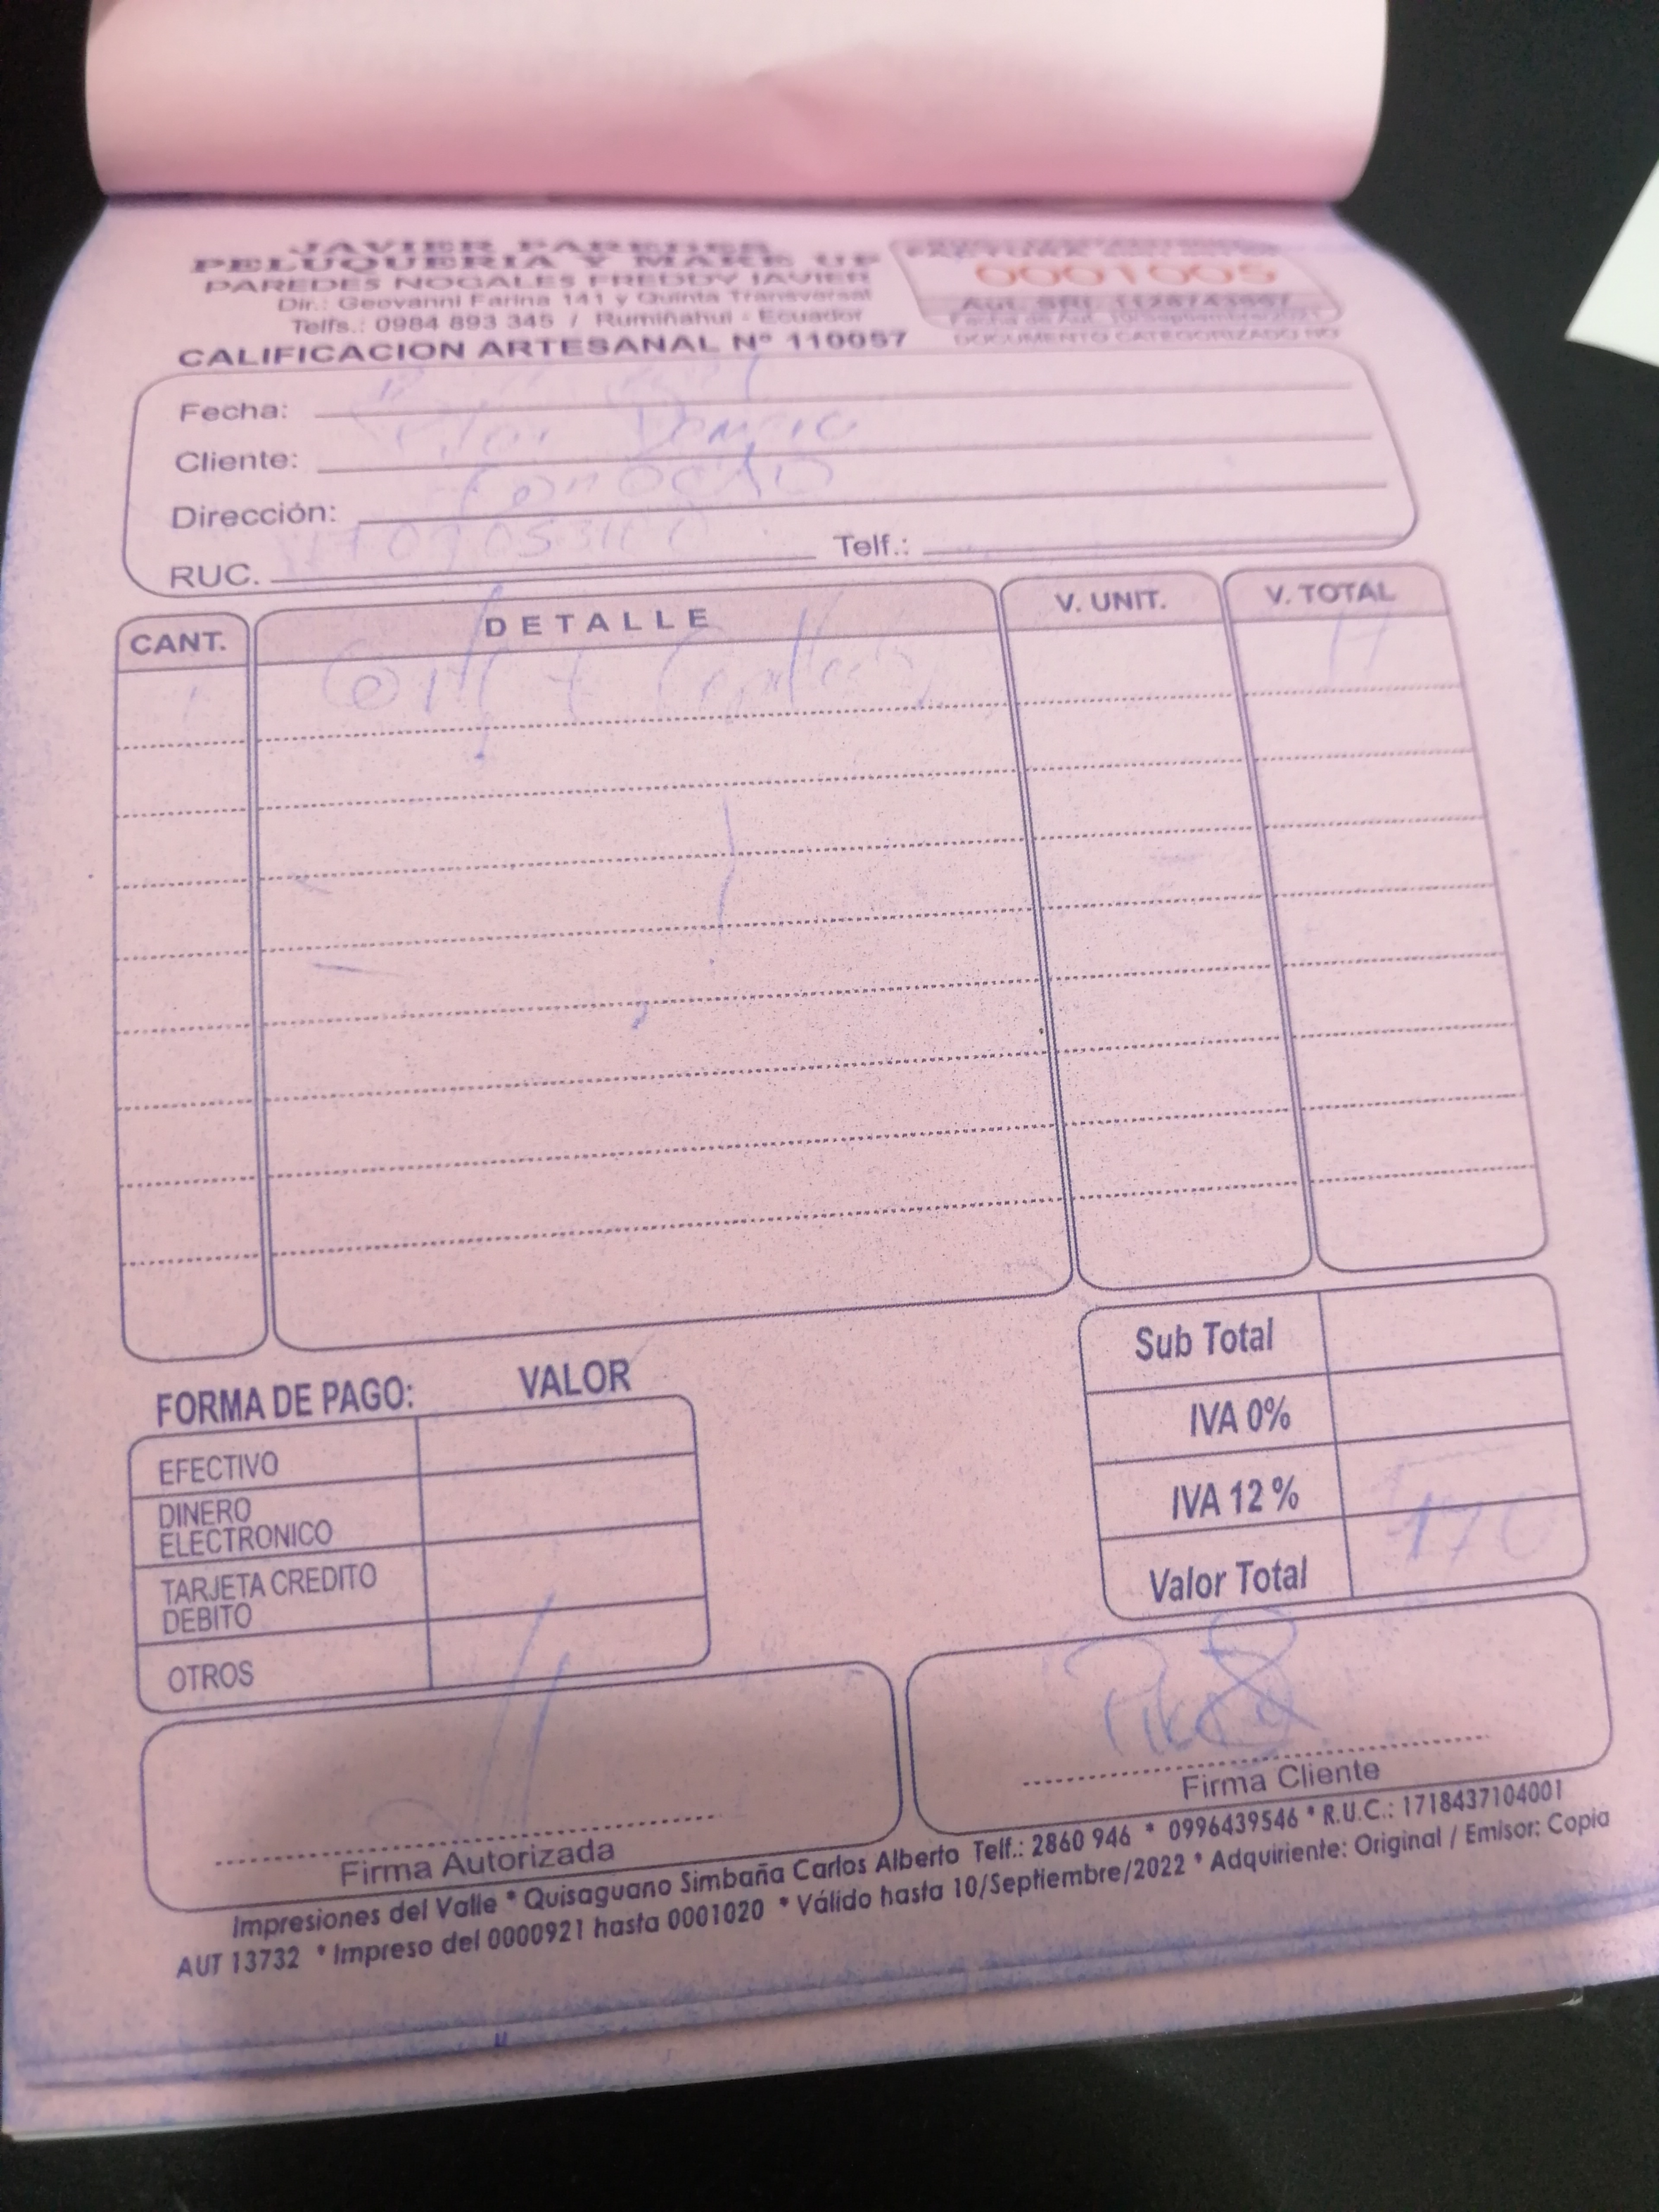 JAVIER PAREDES
PELUQUERIA Y MAKE UP
PAREDES NOGALES FREDDY JAVIER
Dir.: Geovanni Farina 141 y Quinta Transversal
Telfs.: 0984 893 345 / Rumiñahui - Ecuador
CALIFICACION ARTESANAL Nº 110057
FACTURA
0001005
Aut. SRI.
DOCUMENTO CATEGORIZADO NO
Fecha:
Cliente:
Dirección: Conocoto
RUC. Telf.:
CANT. DETALLE V. UNIT. V. TOTAL
1 17
FORMA DE PAGO: VALOR
EFECTIVO
DINERO ELECTRONICO
TARJETA CREDITO DEBITO
OTROS
Sub Total
IVA 0%
IVA 12 %
Valor Total
Firma Autorizada
Firma Cliente
Impresiones del Valle * Quisaguano Simbaña Carlos Alberto Telf.: 2860 946 * 0996439546 * R.U.C.: 1718437104001
AUT 13732 * Impreso del 0000921 hasta 0001020 * Válido hasta 10/Septiembre/2022 * Adquiriente: Original / Emisor: Copia